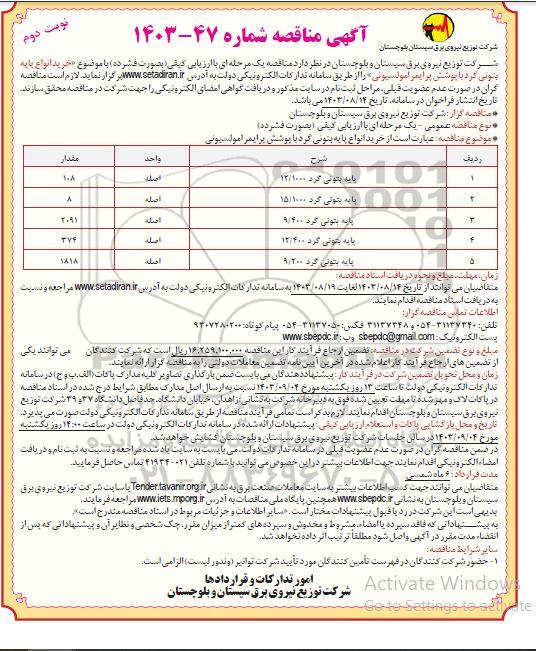 نوبت دوم
آگهی مناقصه شماره ۴۷-۱۴۰۳
شرکت توزیع نیروی برق سیستان بلوچستان
شرکت توزیع نیروی برق سیستان و بلوچستان در نظر دارد مناقصه یک مرحله ای با ارزیابی کیفی (بصورت فشرده) با موضوع «خرید انواع پایه
بتونی گرد با پوشش پرایمر امولسیونی» را از طریق سامانه تدارکات الکترونیکی دولت به آدرس www.setadiran.ir برگزار نماید. لازم است مناقصه
گران در صورت عدم عضویت قبلی، مراحل ثبت نام در سایت مذکور و دریافت گواهی امضای الکترونیکی را جهت شرکت در مناقصه محقق سازند.
تاریخ انتشار فراخوان در سامانه، تاریخ ۱۴۰۳/۰۸/۱۴ می باشد.
* مناقصه گزار: شرکت توزیع نیروی برق سیستان و بلوچستان
* نوع مناقصه عمومی - یک مرحله ای با ارزیابی کیفی (بصورت فشرده)
* موضوع مناقصه: عبارت است از خرید انواع پایه بتونی گرد با پوشش پرایمر امولسیونی
ردیف شرح واحد مقدار
۱ پایه بتونی گرد ۱۲/۱۰۰۰ اصله ۱۰۸
۲ پایه بتونی گرد ۱۵/۱۰۰۰ اصله ۸
۳ پایه بتونی گرد ۹/۴۰۰ اصله ۲۰۹۱
۴ پایه بتونی گرد ۱۲/۴۰۰ اصله ۳۷۴
۵ پایه بتونی گرد ۹/۲۰۰ اصله ۱۸۱۸
زمان، مهلت، مبلغ و نحوه دریافت اسناد مناقصه:
متقاضیان می توانند از تاریخ ۱۴۰۳/۰۸/۱۴ لغایت ۱۴۰۳/۰۸/۱۹ به سامانه تدارکات الکترونیکی دولت به آدرس www.setadiran.ir مراجعه و نسبت
به دریافت اسناد مناقصه اقدام نمایند.
اطلاعات تماس مناقصه گزار:
تلفن: ۳۱۱۳۷۳۴۰-۰۵۴ و ۳۱۱۳۷۳۴۸ فکس: ۳۱۱۳۷۰۵۰-۰۵۴ پیام کوتاه: ۹۳۰۷۲۸۰۲۰۰
پست الکترونیک: sbepdc@gmail.com وب: www.sbepdc.ir
مبلغ و نوع تضمین شرکت در مناقصه: تضمین ارجاع فرآیند کار این مناقصه ۱۶،۲۵۹،۱۰۰،۰۰۰ ریال است که شرکت کنندگان می توانند یکی
از تضمین های ارجاع فرآیند کار اعلام شده در آخرین آیین نامه تضمین معاملات دولتی را به مناقصه گزار ارائه نمایند.
زمان و محل تحویل تضمین شرکت در فرآیند کار: پیشنهاد دهندگان می بایست ضمن بارگذاری تصاویر کلیه مدارک پاکات (الف، ب و ج) در سامانه
تدارکات الکترونیکی دولت تا ساعت ۱۳ روز یکشنبه مورخ ۱۴۰۳/۰۹/۰۴ نسبت به ارسال اصل مدارک مطابق شرایط درج شده در اسناد مناقصه
در پاکات لاک و مهر شده تا مهلت تعیین شده فوق به دبیرخانه شرکت به نشانی: زاهدان، خیابان دانشگاه، حدفاصل دانشگاه ۳۷ و ۳۹ شرکت توزیع
نیروی برق سیستان و بلوچستان اقدام نمایند. لازم بذکر است تمامی فرآیند مناقصه از طریق سامانه تدارکات الکترونیکی دولت صورت می پذیرد.
تاریخ و محل بازگشایی پاکات و استعلام ارزیابی کیفی: پیشنهادات ارائه شده در سامانه تدارکات الکترونیکی دولت در ساعت ۱۴:۰۰ روز یکشنبه
مورخ ۱۴۰۳/۰۹/۰۴ در سالن جلسات شرکت توزیع نیروی برق سیستان و بلوچستان گشایش خواهد شد.
در ضمن مناقصه گران در صورت عدم عضویت قبلی در سامانه تدارکات دولت، می بایست به سایت یاد شده مراجعه و نسبت به ثبت نام و دریافت
امضاء الکترونیکی اقدام نمایند جهت اطلاعات بیشتر در این خصوص می توانید با شماره تلفن ۰۲۱-۴۱۹۳۴ تماس حاصل فرمایید.
مدت قرارداد: ۶ ماه شمسی
متقاضیان می توانند جهت کسب اطلاعات بیشتر به سایت معاملات صنعت برق به نشانی Tender.tavanir.org.ir یا سایت شرکت توزیع نیروی برق
سیستان و بلوچستان به نشانی www.sbepdc.ir همچنین پایگاه ملی مناقصات به آدرس www.iets.mporg.ir مراجعه فرمایند.
بدیهی است این شرکت در رد یا قبول پیشنهادات مختار است. «سایر اطلاعات و جزئیات مربوط در اسناد مناقصه مندرج است».
به پیشنهاداتی که فاقد سپرده یا امضاء، مشروط و مخدوش و سپرده های کمتر از میزان مقرر، چک شخصی و نظایر آن و پیشنهاداتی که پس از
انقضاء مدت مقرر در آگهی واصل شود مطلقاً ترتیب اثر داده نخواهد شد.
سایر شرایط مناقصه:
۱- حضور شرکت کنندگان در فهرست تأمین کنندگان مورد تأیید شرکت توانیر (وندور لیست) الزامی است.
امور تدارکات و قراردادها
شرکت توزیع نیروی برق سیستان و بلوچستان
Activate Windows
Go to Settings to activate